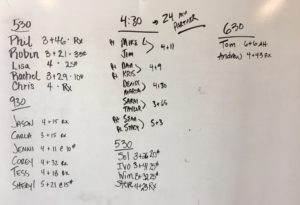 530
Phil 3+46 · Rx
Robin 3+21 · 35#
Lisa 4 · 25#
Rachel 3+29 · 10#
Chris 4 · Rx
930
Jason 4+15 Rx
Carla 3+15 Rx
Jenni 4+11 @ 10#
Corey 4+32 Rx
Tess 4+18 Rx
Sheryl 5+21 @ 15#
4:30 → 24 min Partner
Mike
Jim
4+11
Dan
Kris
4+9
Denise
Maria
4+30
Sarah
Taylor
3+65
Sean
Stacy
5+3
530
Sol 3+36 20#
Ivo 3+41 25#
Wim 3+32 25#
4+28 Rx
630
Tom 6+6
Andrew 4+43 Rx